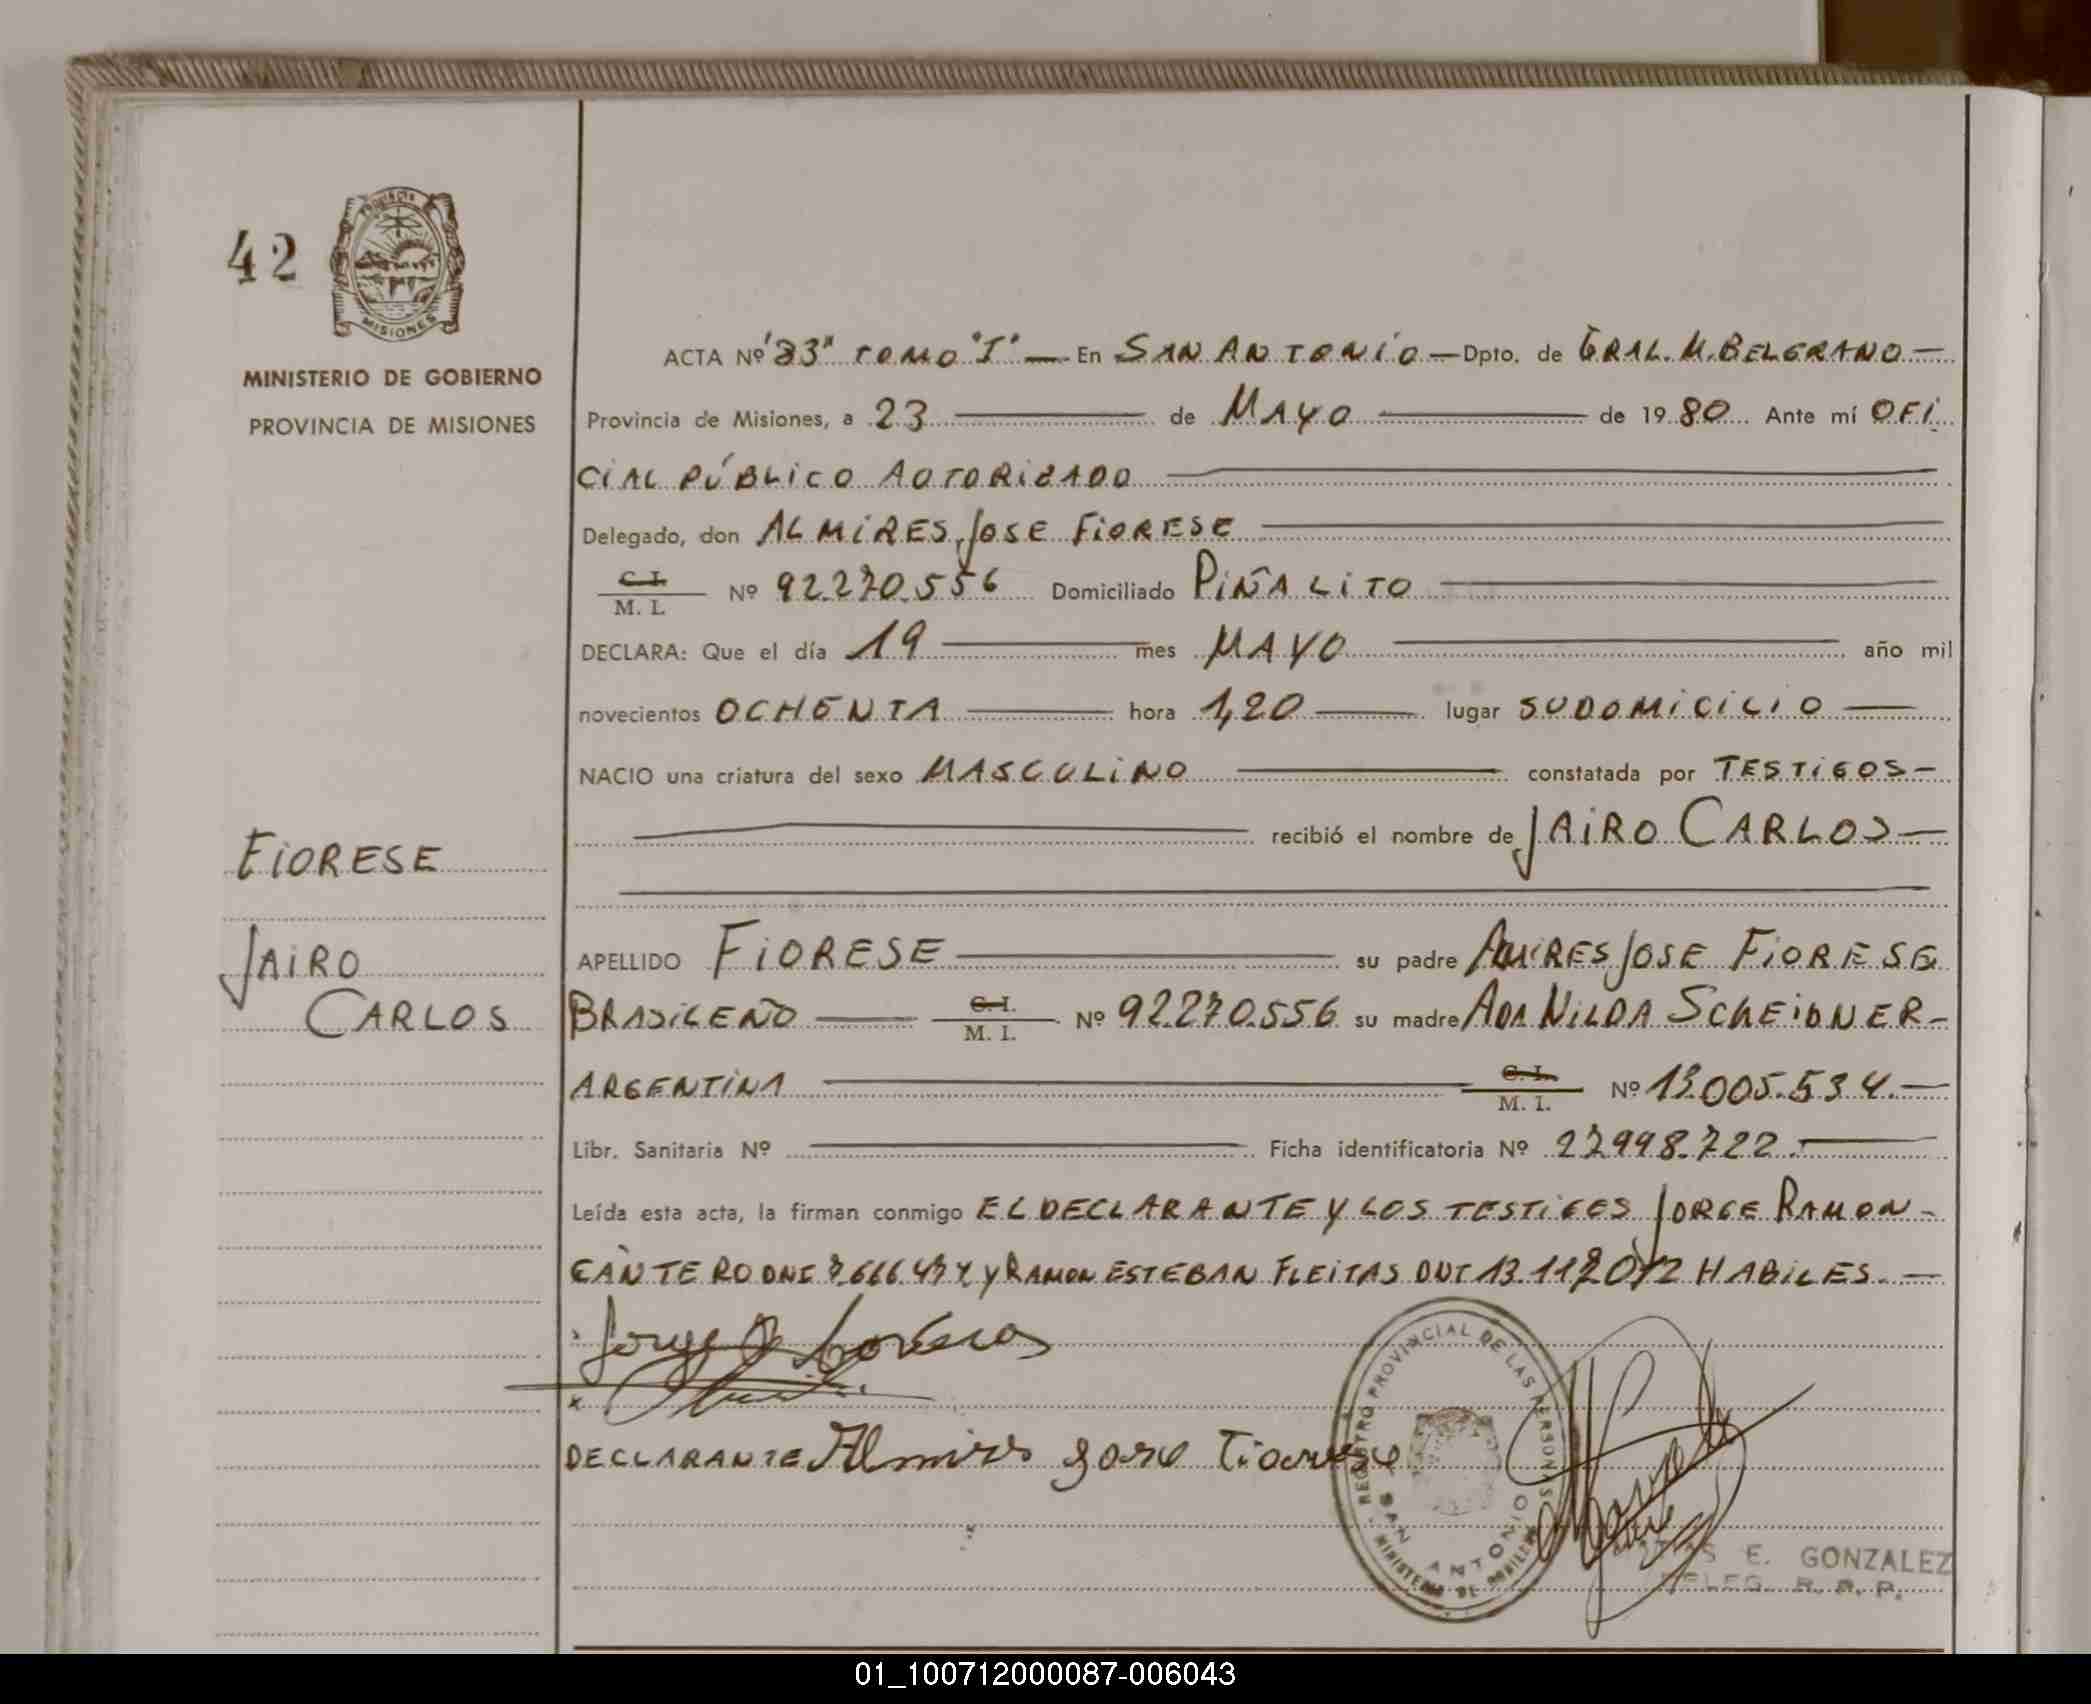 42
PROVINCIA
MISIONES
MINISTERIO DE GOBIERNO
PROVINCIA DE MISIONES
FIORESE
JAIRO
CARLOS
ACTA Nº "33" TOMO "I" — En SAN ANTONIO — Dpto. de GRAL. M. BELGRANO —
Provincia de Misiones, a 23 — de MAYO — de 1980 Ante mí OFI
CIAL PÚBLICO AUTORIZADO —
Delegado, don ALMIRES JOSE FIORESE —
C. I.
M. I. Nº 92.270.556 Domiciliado PIÑALITO —
DECLARA: Que el día 19 — mes MAYO — año mil
novecientos OCHENTA — hora 1,20 — lugar SU DOMICILIO —
NACIO una criatura del sexo MASCULINO — constatada por TESTIGOS —
recibió el nombre de JAIRO CARLOS —
APELLIDO FIORESE — su padre ALMIRES JOSE FIORESE
BRASILEÑO — C. I. M. I. Nº 92.270.556 su madre ADA NILDA SCHEIDNER —
ARGENTINA — C. I. M. I. Nº 13.005.534. —
Libr. Sanitaria Nº — Ficha identificatoria Nº 27.998.722. —
Leída esta acta, la firman conmigo EL DECLARANTE Y LOS TESTIGES JORGE RAMON —
CANTERO DNI Y RAMON ESTEBAN FLEITAS DNI HABILES —
DECLARANTE Almires Jose Fiorese
REGISTRO PROVINCIAL DE LAS PERSONAS
SAN ANTONIO
MINISTERIO DE
E. GONZALEZ
DELEG. R. P. P.
01_100712000087-006043